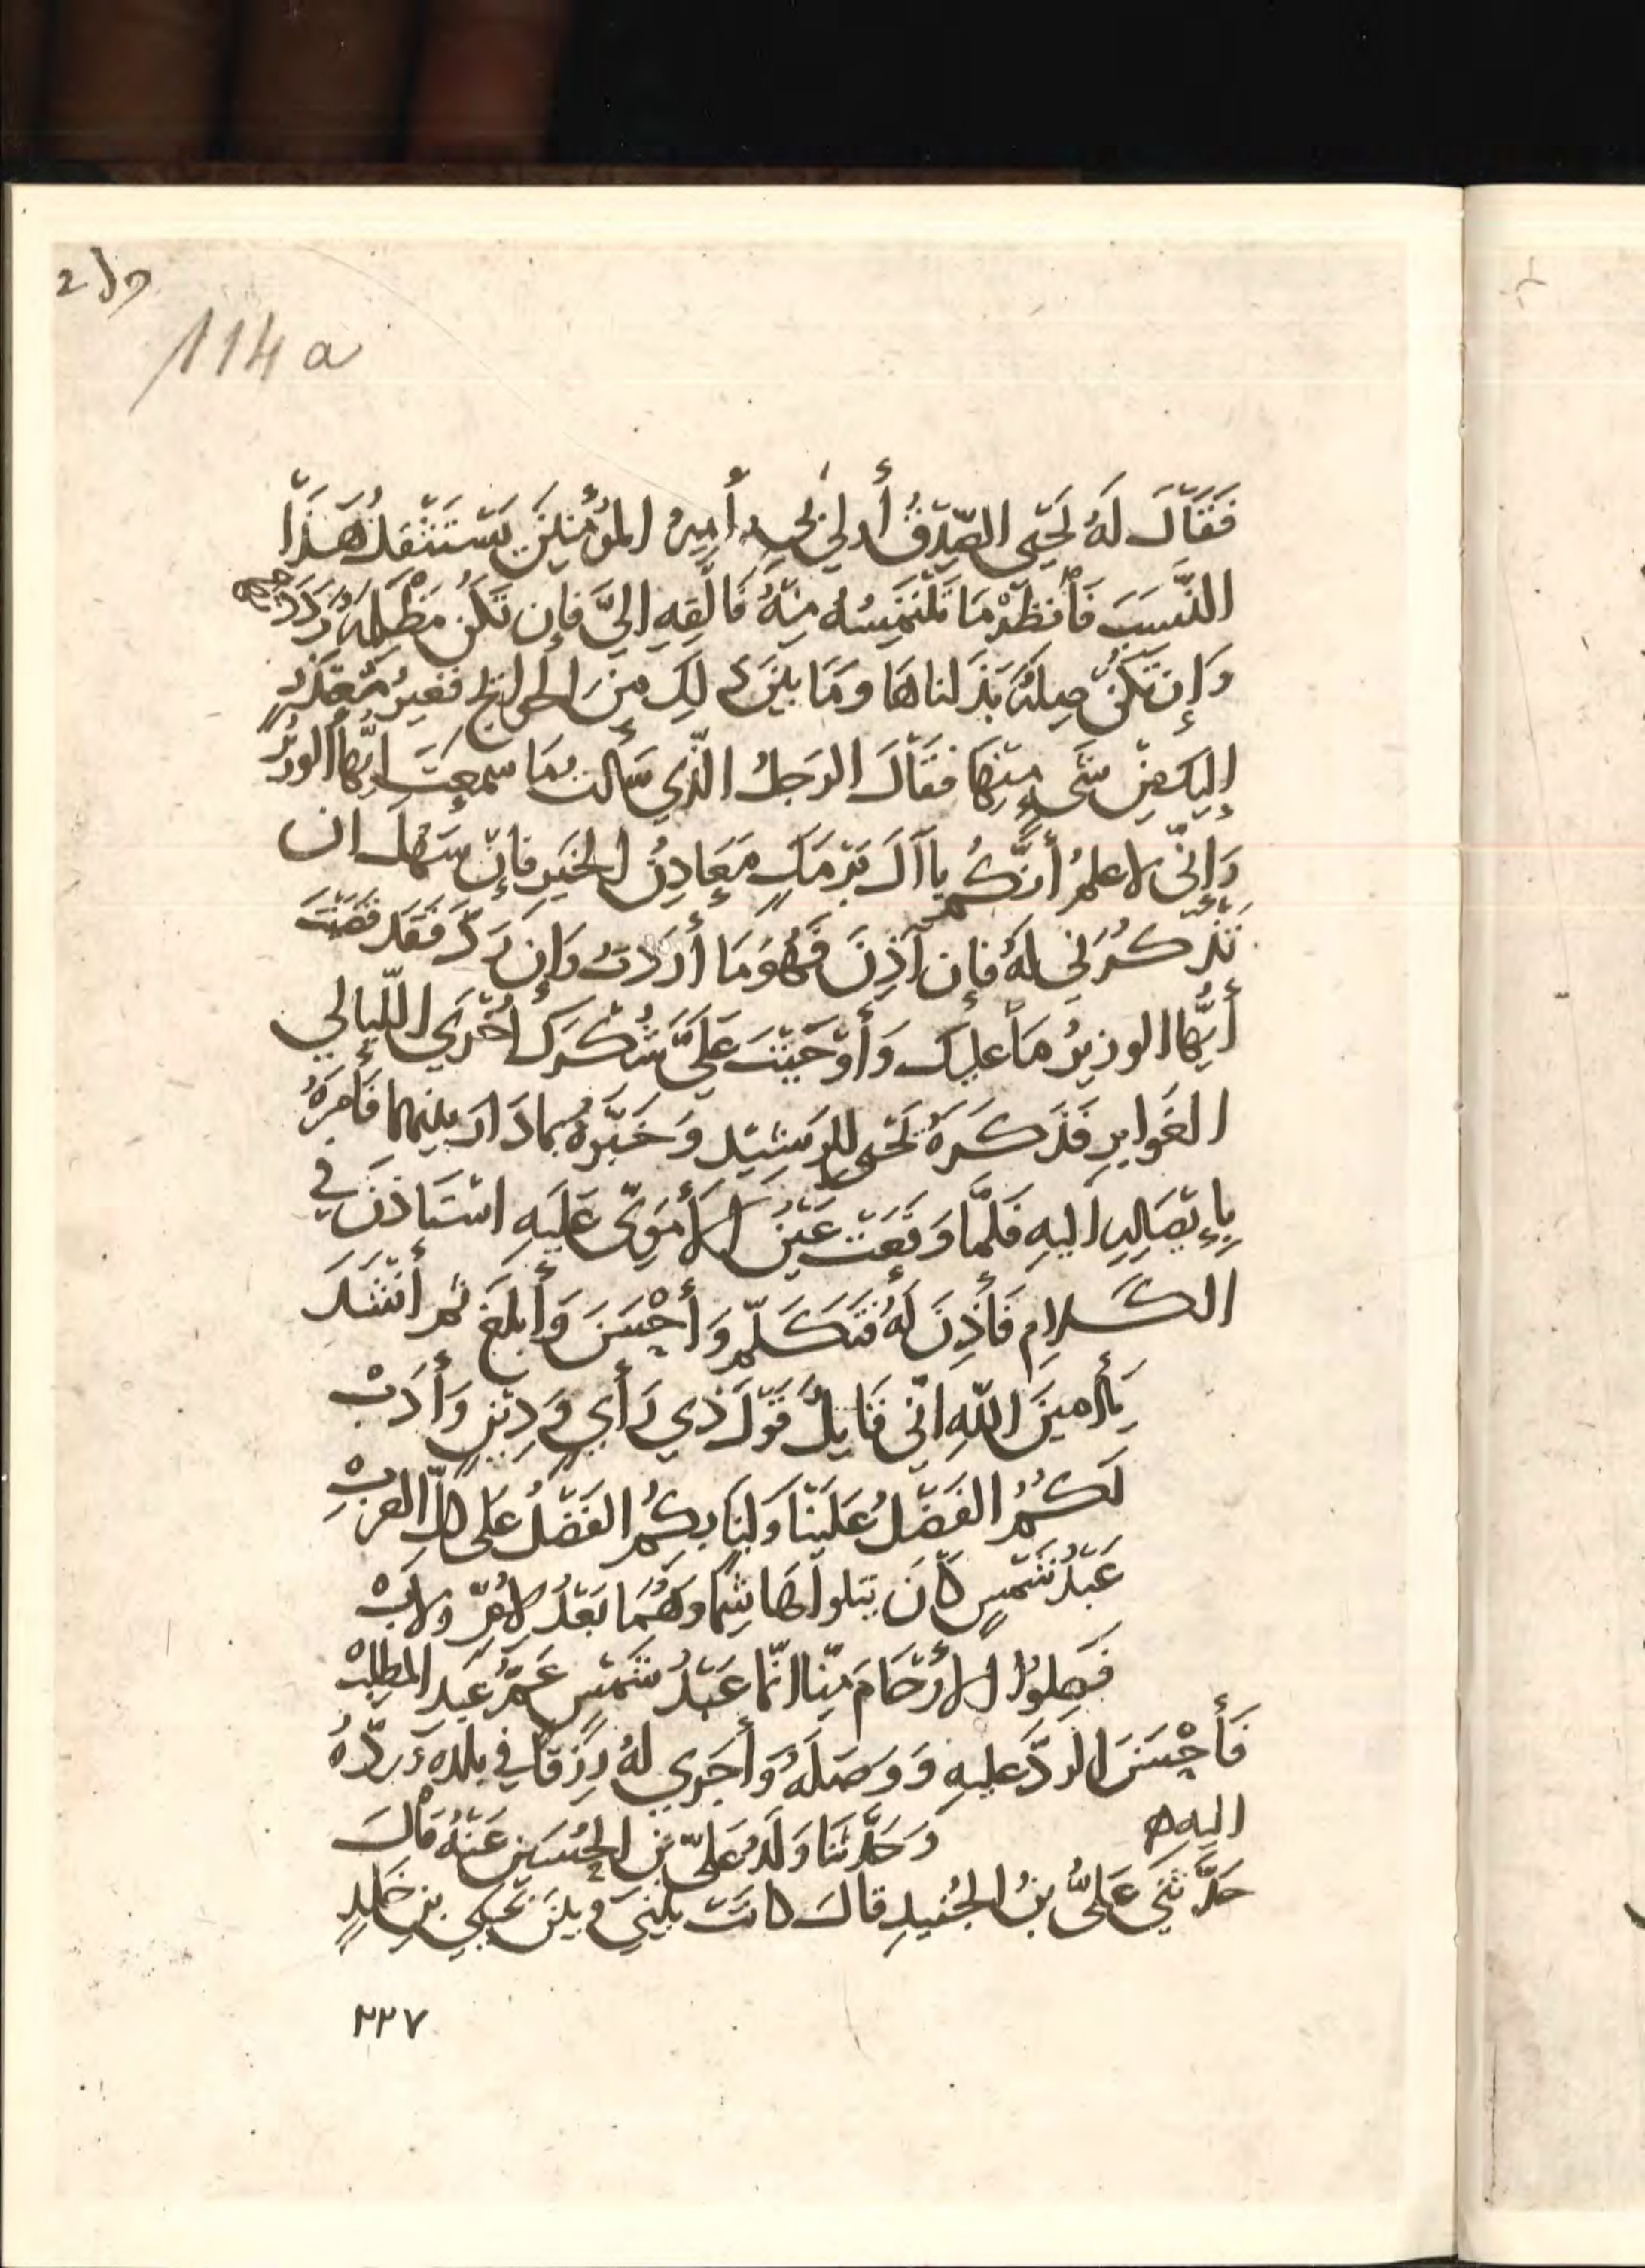 114 a
فَقَالَ لَهُ يَحْيَى الصِّدْقُ أَولى بي أَمِيرُ المُؤْمِنِينَ يَسْتَثْقِلُ هَذَا
النَّسَبَ فَانظُرْ مَا تَلْتَمِسُهُ مِنْهُ فَالْقِهِ إِلَيَّ فَإِن تَكُنْ مَظْلِمَةً رَدَدْنَاهَا
وَإِن تَكُنْ صِلَةً بَذَلناهَا وَمَا بَيْنَ ذَلِكَ مِنَ الحَوائِجِ فَغَيْرُ مُتَعَذِّرٍ
إِلَيكَ مِنْ شَيءٍ مِنْهَا فَقَالَ الرَجلُ الَّذِي سَأَلتُ مَا سَمِعْتَ أَيُّهَا الوزيرُ
وَإِنّى لاعلمُ أَنَّكُم يا آلَ بَرْمَكٍ مَعَادِنُ الخَيرِ فَإِنْ سَهُلَ ان
تَذْكُرُنِي لَهُ فَإِن آذِنَ فَهُوَ مَا أَرَدتُ وَإِن رَدَّ فَقَدْ قَضَيْتَ
أَيُّهَا الوزيرُ مَا عليكَ وَأَوْجَبْتَ عَلَيَّ شُكْرَكَ أُخْرَي اللَّيالي
الغَوابِرِ فَذَكَرَهُ يَحْيَى لِلرَشِيْدِ وَخَبَّرهُ بما دَارَ بينهما فَأمرهُ
بِإِيْصَالِهِ اليهِ فَلَمَّا وَقَعَتْ عَيْنُ الأَمَوِيِّ عَلَيهِ اسْتَأذَنَ في
الكَلامِ فَأَذِنَ لَهُ فَتَكَلَّمَ وَأَحْسَنَ وَأَبلَغَ ثم أَنشَدَ
يَأَمينَ اللّهِ انّى قَايِلٌ قَوْلَ ذي رَأْيٍ وَدِيْنٍ وَأَدَبْ
لَكُمُ الفَضْلُ عَلَيْنَا وَلَنَا بِكُمُ الفَضْلُ عَلى كلِّ العربْ
عَبْدُ شَمْسٍ كَانَ يتلوا هَاشِمًا وَهُمَا بَعْدُ لأُمٍّ ولأبْ
فَصِلُوا الأَرْحَامَ مِنّا انّمَا عَبْدُ شَمْسٍ عَمُّ عَبدِ المطلبْ
فَأَحْسَنَ الرَدَّ عليهِ وَوَصَلَهُ وَأَجْرِي لهُ رِزْقًا في بلده وَردَّهُ
اليهِ ه وَحَدَّثَنَا وَلَدُ عَلِيِّ بن الحُسَينِ عَنْهُ قَالَ
حَدَّثَنِي عَلِيُّ بنُ الجُنيدِ قالَ كانَتْ بَيْنِي وَبَيْنَ يَحْيَي بنِ خَالِدٍ
٢٢٧